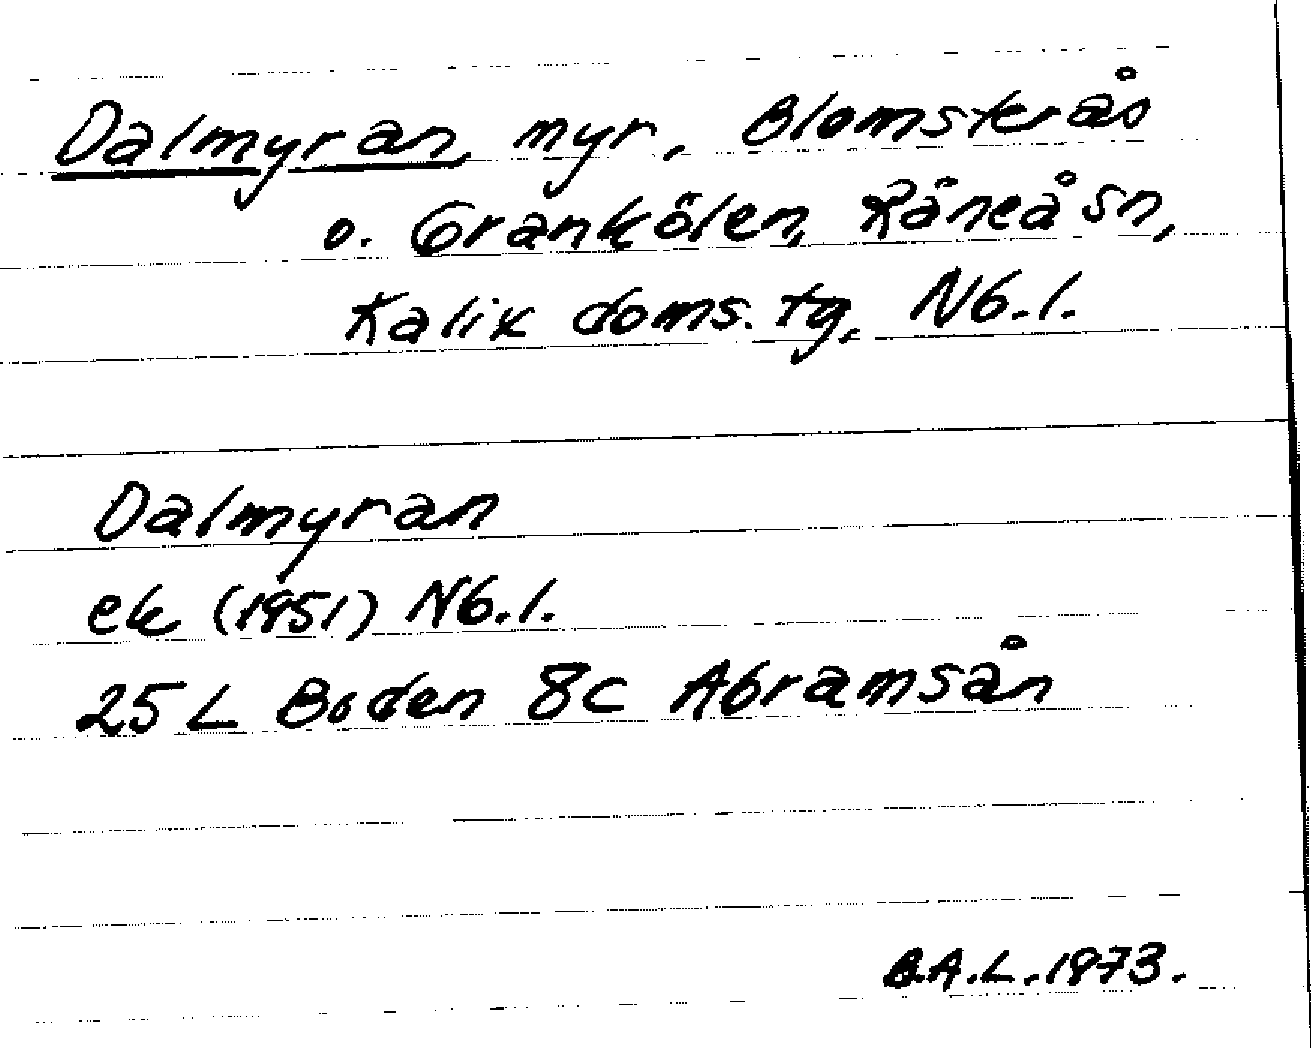 Dalmyran, myr, Blomsterås
o. Grankölen, Råneå sn,
Kalix doms. tg, Nb.l.
Dalmyran
ek (1951) Nb.l.
25 L Boden 8c Abramsån
B.A.L. 1973.